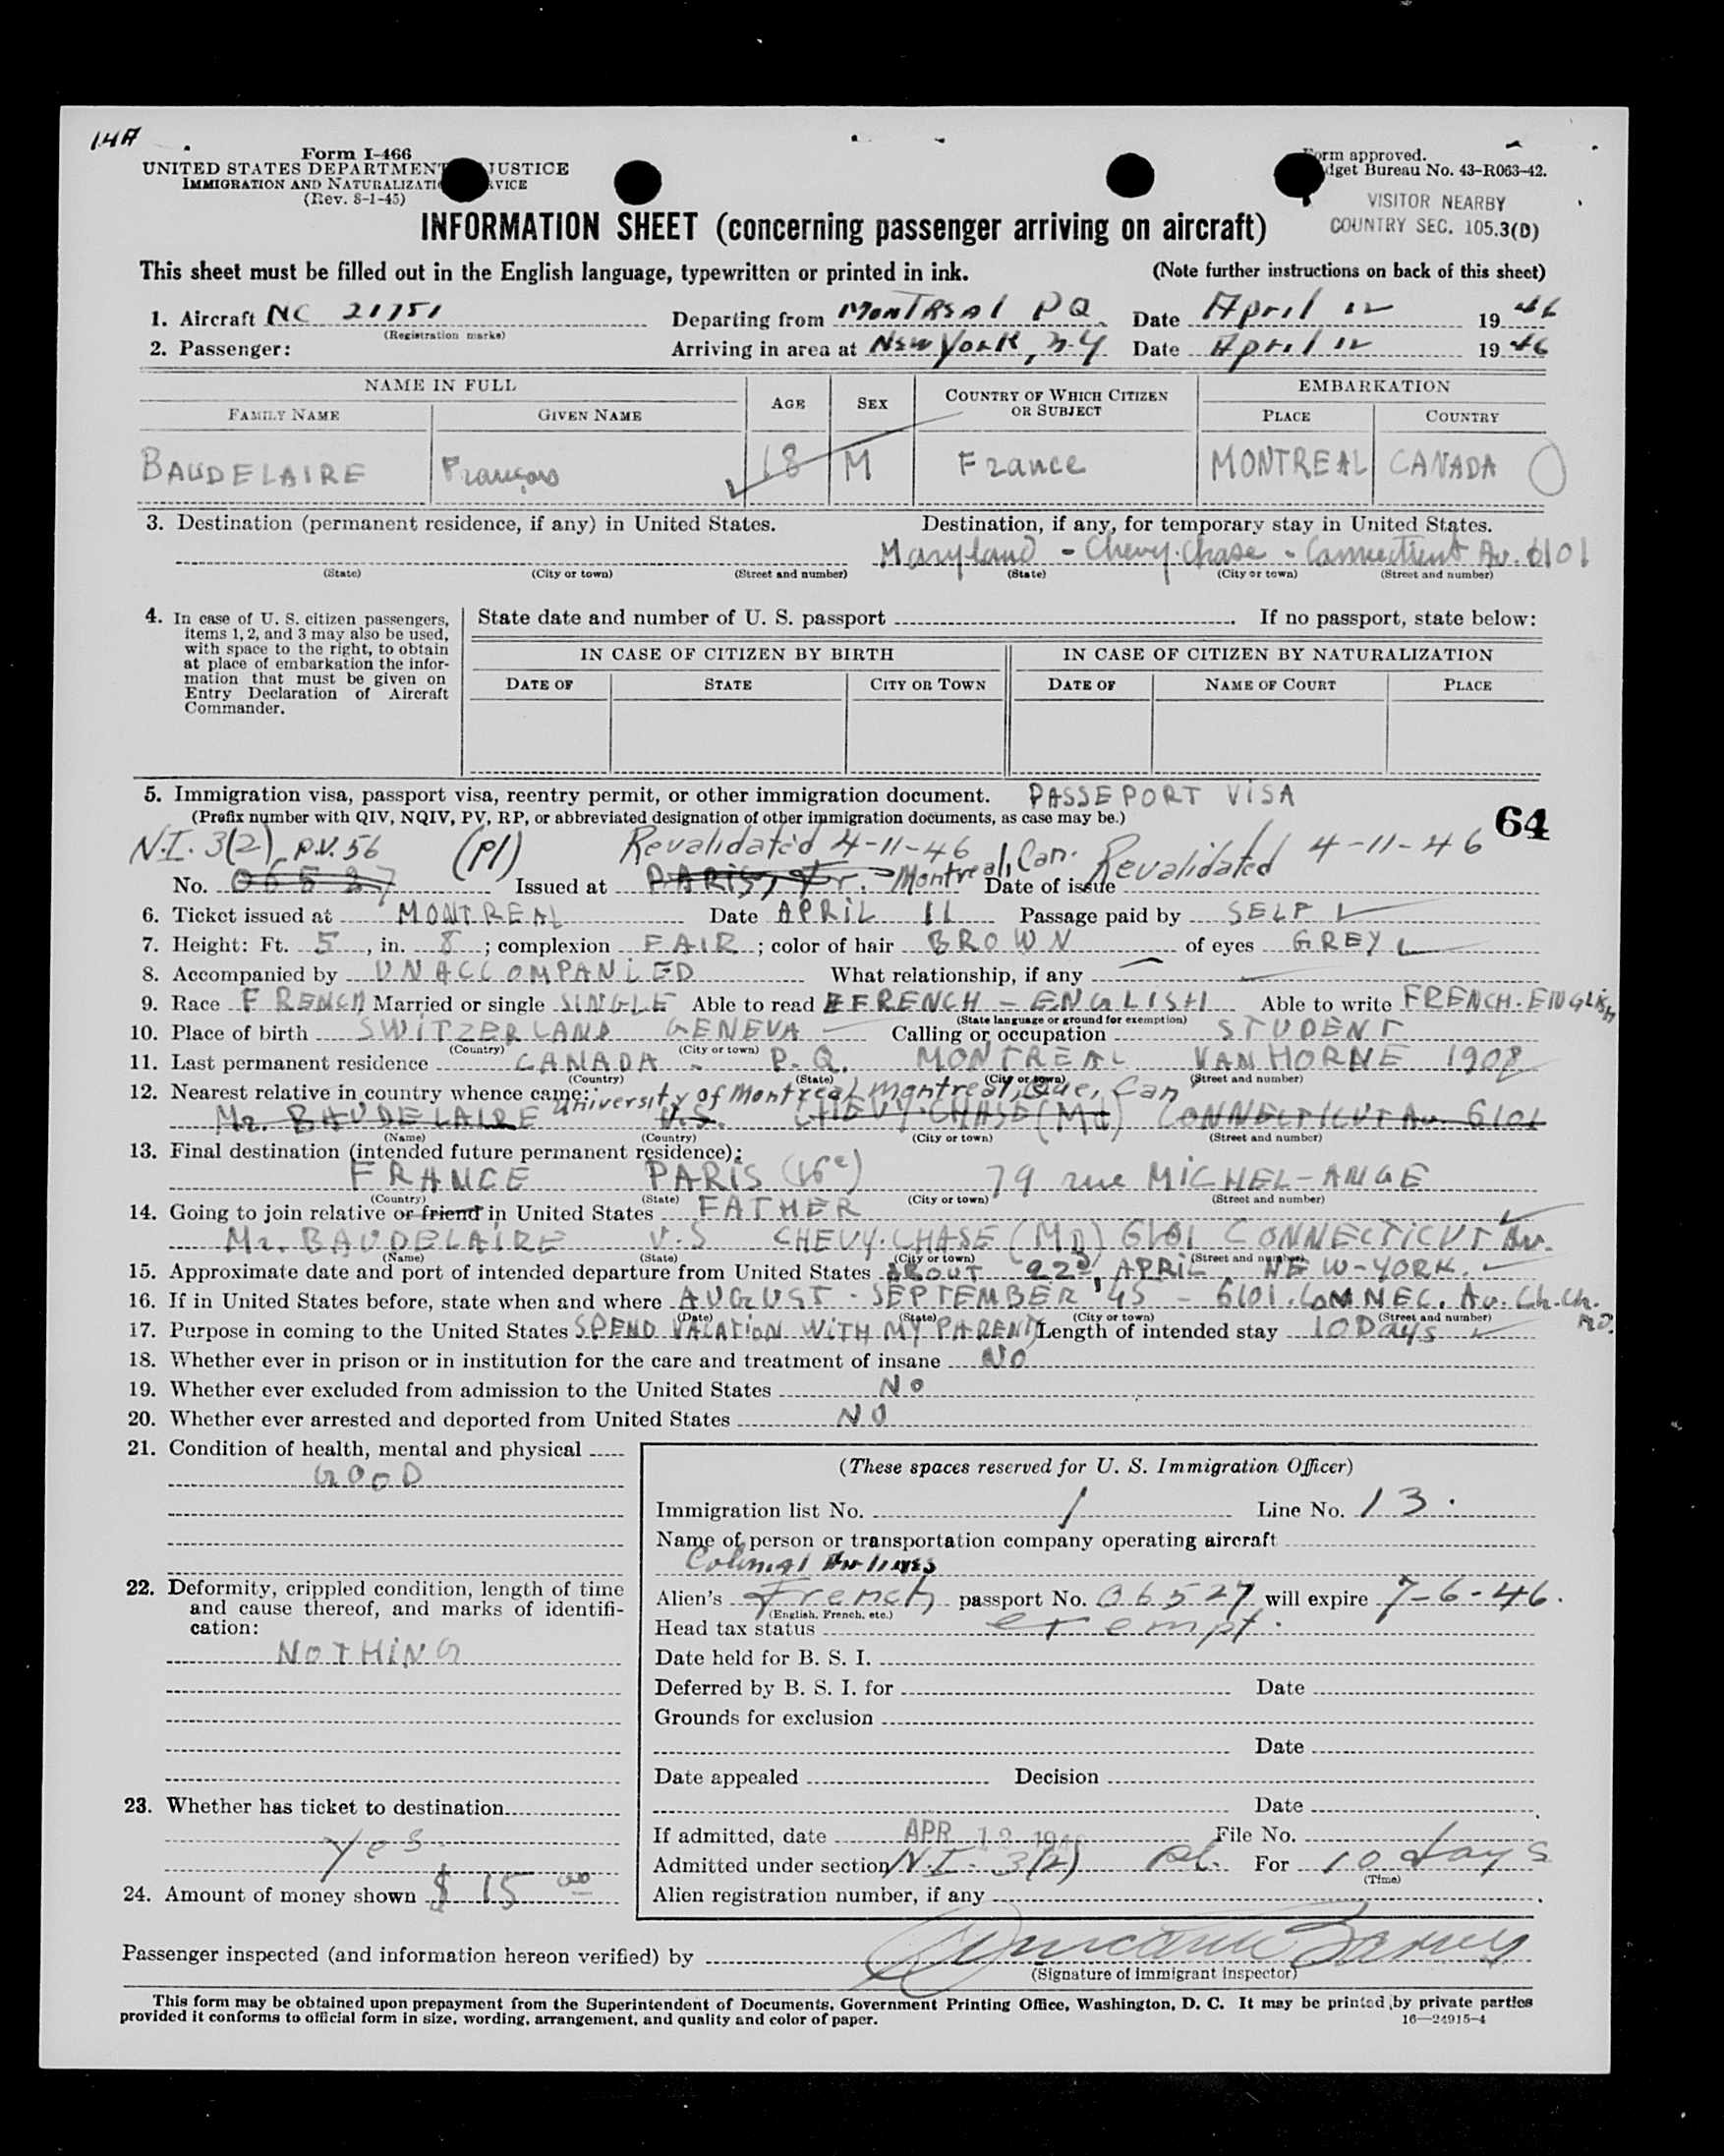 14A
Form I-466
UNITED STATES DEPARTMENT JUSTICE
IMMIGRATION AND NATURALIZATI VICE
(Rev. 8-1-45)
Form approved.
dget Bureau No. 43-R063-42.
VISITOR NEARBY
COUNTRY SEC. 105.3(D)
INFORMATION SHEET (concerning passenger arriving on aircraft)
This sheet must be filled out in the English language, typewritten or printed in ink. (Note further instructions on back of this sheet)
1. Aircraft NC 21751 Departing from Montreal PQ Date April 12 1946
(Registration marks)
2. Passenger: Arriving in area at New York, N.Y Date April 12 1946
NAME IN FULL AGE SEX COUNTRY OF WHICH CITIZEN OR SUBJECT EMBARKATION
FAMILY NAME GIVEN NAME PLACE COUNTRY
BAUDELAIRE François 18 M France MONTREAL CANADA
3. Destination (permanent residence, if any) in United States. Destination, if any, for temporary stay in United States.
Maryland - Chevy-Chase - Connecticut Av. 6101
(State) (City or town) (Street and number) (State) (City or town) (Street and number)
4. In case of U. S. citizen passengers, items 1, 2, and 3 may also be used, with space to the right, to obtain at place of embarkation the information that must be given on Entry Declaration of Aircraft Commander.
State date and number of U. S. passport If no passport, state below:
IN CASE OF CITIZEN BY BIRTH IN CASE OF CITIZEN BY NATURALIZATION
DATE OF STATE CITY OR TOWN DATE OF NAME OF COURT PLACE
5. Immigration visa, passport visa, reentry permit, or other immigration document. PASSEPORT VISA
(Prefix number with QIV, NQIV, PV, RP, or abbreviated designation of other immigration documents, as case may be.) 64
N.I. 3(2) P.V. 56 (Pl) Revalidated 4-11-46 Revalidated 4-11-46
No. 06527 Issued at PARIS, Fr. Montreal, Can. Date of issue
6. Ticket issued at MONTREAL Date APRIL 11 Passage paid by SELF
7. Height: Ft. 5, in. 8; complexion FAIR; color of hair BROWN of eyes GREY
8. Accompanied by UNACCOMPANIED What relationship, if any —
9. Race FRENCH Married or single SINGLE Able to read FRENCH - ENGLISH Able to write FRENCH-ENGLISH
(State language or ground for exemption)
10. Place of birth SWITZERLAND GENEVA Calling or occupation STUDENT
(Country) (City or town)
11. Last permanent residence CANADA - P.Q. MONTREAL VAN HORNE 1908
(Country) (State) (City or town) (Street and number)
12. Nearest relative in country whence came: University of Montreal, Montreal, Que, Can
Mr. BAUDELAIRE U.S. CHEVY-CHASE (Md) CONNECTICUT Av. 6101
(Name) (Country) (City or town) (Street and number)
13. Final destination (intended future permanent residence):
FRANCE PARIS (16e) 79 rue MICHEL-ANGE
(Country) (State) (City or town) (Street and number)
14. Going to join relative or friend in United States FATHER
Mr. BAUDELAIRE U.S CHEVY-CHASE (MD) 6101 CONNECTICUT Av.
(Name) (State) (City or town) (Street and number)
15. Approximate date and port of intended departure from United States ABOUT 22d APRIL NEW-YORK.
16. If in United States before, state when and where AUGUST - SEPTEMBER '45 - 6101 CONNEC. Av. Ch. Ch. MD.
(Date) (State) (City or town) (Street and number)
17. Purpose in coming to the United States SPEND VACATION WITH MY PARENTS Length of intended stay 10 Days
18. Whether ever in prison or in institution for the care and treatment of insane NO
19. Whether ever excluded from admission to the United States No
20. Whether ever arrested and deported from United States NO
21. Condition of health, mental and physical
GOOD
22. Deformity, crippled condition, length of time and cause thereof, and marks of identification:
NOTHING
23. Whether has ticket to destination
Yes
24. Amount of money shown $ 15 00
(These spaces reserved for U. S. Immigration Officer)
Immigration list No. 1 Line No. 13.
Name of person or transportation company operating aircraft
Colonial Airlines
Alien's French passport No. 06527 will expire 7-6-46.
(English, French, etc.)
Head tax status exempt.
Date held for B. S. I.
Deferred by B. S. I. for Date
Grounds for exclusion
Date
Date appealed Decision
Date
If admitted, date APR 12 1946 File No.
Admitted under section N.I. - 3(2) Pl. For 10 days
(Time)
Alien registration number, if any
Passenger inspected (and information hereon verified) by
(Signature of immigrant inspector)
This form may be obtained upon prepayment from the Superintendent of Documents, Government Printing Office, Washington, D. C. It may be printed by private parties
provided it conforms to official form in size, wording, arrangement, and quality and color of paper. 16—24915-4